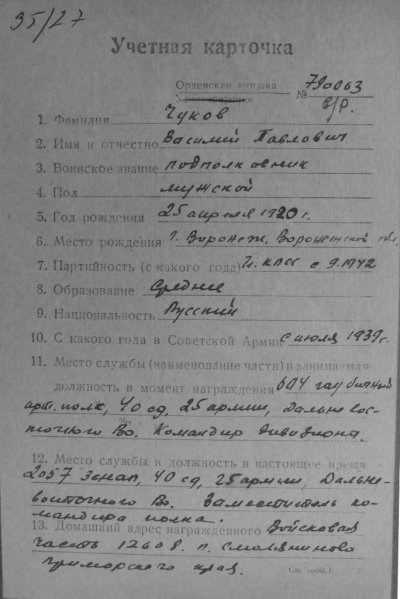 35/27
Учетная карточка
Орденская книжка № 790063
б/р.
1. Фамилия Чуков
2. Имя и отчество Василий Павлович
3. Воинское звание подполковник
4. Пол мужской
5. Год рождения 25 апреля 1920 г.
6. Место рождения г. Воронеж, Воронежской обл.
7. Партийность (с какого года) с 9.1942
8. Образование Среднее
9. Национальность Русский
10. С какого года в Советской Армии с июля 1939 г.
11. Место службы (наименование части) и занимаемая
должность в момент награждения 694 гаубичный
арт. полк, 40 сд, 25 армии, Дальневос-
точного Во. Командир дивизиона.
12. Место службы и должность в настоящее время
2057 зенап, 40 сд, 25 армии, Дальне-
восточного Во. Заместитель ко-
мандира полка.
13. Домашний адрес награжденного Войсковая
часть 12608. п. Смоляниново
Приморского края.